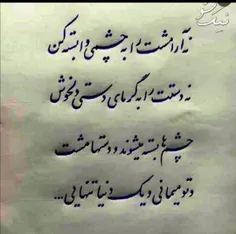 نه آرامشت را به چشمی وابسته کن
نه دستت را به گرمای دستی دلخوش
چشم ها بسته میشوند و دستها مشت
و تو میمانی و یک دنیا تنهایی...